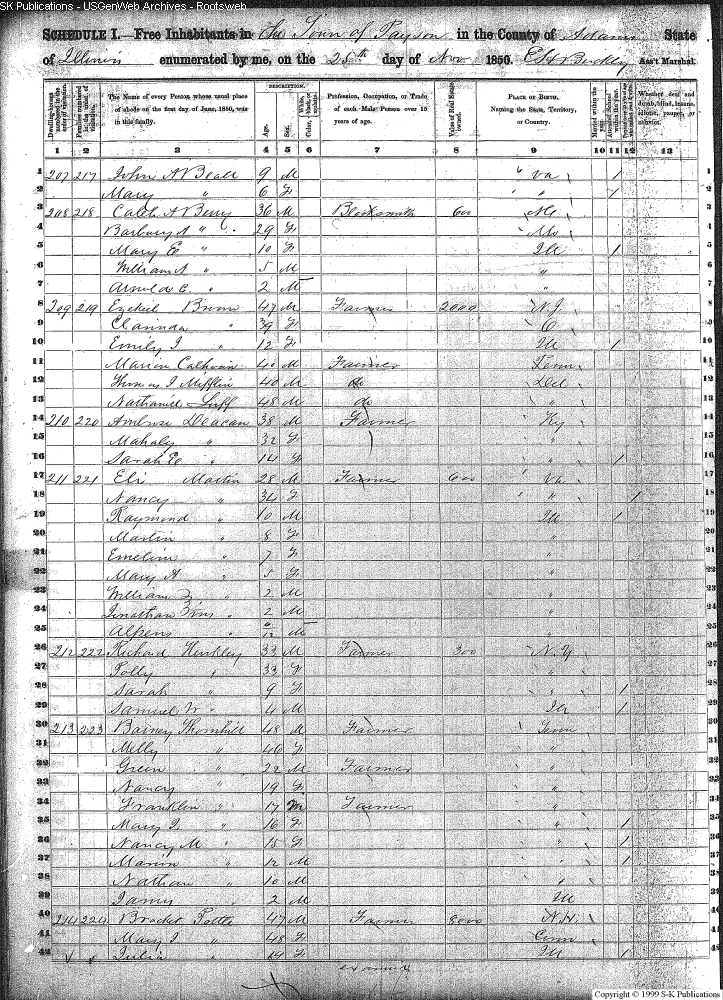 SK Publications - USGenWeb Archives - Rootsweb
SCHEDULE I.—Free Inhabitants in the Town of Payson in the County of Adams State
of Illinois enumerated by me, on the 25th day of Nov 1850. Ass't Marshal.
DESCRIPTION.
Dwelling-houses numbered in the order of visitation.
Families numbered in the order of visitation.
The Name of every Person whose usual place of abode on the first day of June, 1850, was in this family.
Age.
Sex.
Color, White, black, or mulatto.
Profession, Occupation, or Trade of each Male Person over 15 years of age.
Value of Real Estate owned.
PLACE OF BIRTH. Naming the State, Territory, or Country.
Married within the year.
Attended School within the year.
Whether deaf and dumb, blind, insane, idiotic, pauper, or convict.
1 2 3 4 5 6 7 8 9 10 11 12 13
1 207 217 John A Beall 9 M " Va / 1
2 Mary " 6 F " " / 2
3 208 218 Caleb A Berry 36 M Blacksmith 600 3
4 " 29 F Mo 4
5 Mary E " 10 F Ill / 5
6 William A " 5 M " 6
7 " 2 M " 7
8 209 219 Ezekiel Brown 47 M Farmer 2000 N.J. 8
9 Clarinda " 39 F O 9
10 Emily J " 12 F Ill / 10
11 Marion Calhoun 40 M Farmer Tenn 11
12 Thomas J Mifflin 40 M do Del 12
13 Nathaniel 48 M do " 13
14 210 220 Ambrose Deacan 38 M Farmer Ky 14
15 Mahaly " 32 F " 15
16 Sarah E " 14 F " / 16
17 211 221 Eli Martin 28 M Farmer 600 Va 17
18 Nancy " 34 F " / 18
19 Raymond " 10 M Ill / 19
20 Martin " 8 F " 20
21 Emeline " 7 F " 21
22 Mary A " 5 F " 22
23 William " 2 M " 23
24 Jonathan " 2 M " 24
25 Alpens " 6/12 M " 25
26 212 222 Richard Hinkley 33 M Farmer 300 N.Y 26
27 Polly " 33 F " 27
28 Sarah " 9 F " / 28
29 Samuel W " 4 M Ill / 29
30 213 223 Barney Thornhill 48 M Farmer Tenn 30
31 Milly " 46 F " 31
32 Green " 22 M Farmer " 32
33 Nancy " 19 F " 33
34 Franklin " 17 M Farmer " 34
35 Mary J. " 16 F " / 35
36 Nancy M " 15 F " / 36
37 Marion " 12 M " / 37
38 Nathan " 10 M " 38
39 James " 2 M Ill 39
40 214 224 Bracket Pottle 47 M Farmer 8800 N.H. 40
41 Mary J " 48 F Conn 41
42 Julia " 14 F Ill / 42
Copyright © 1999 S-K Publications